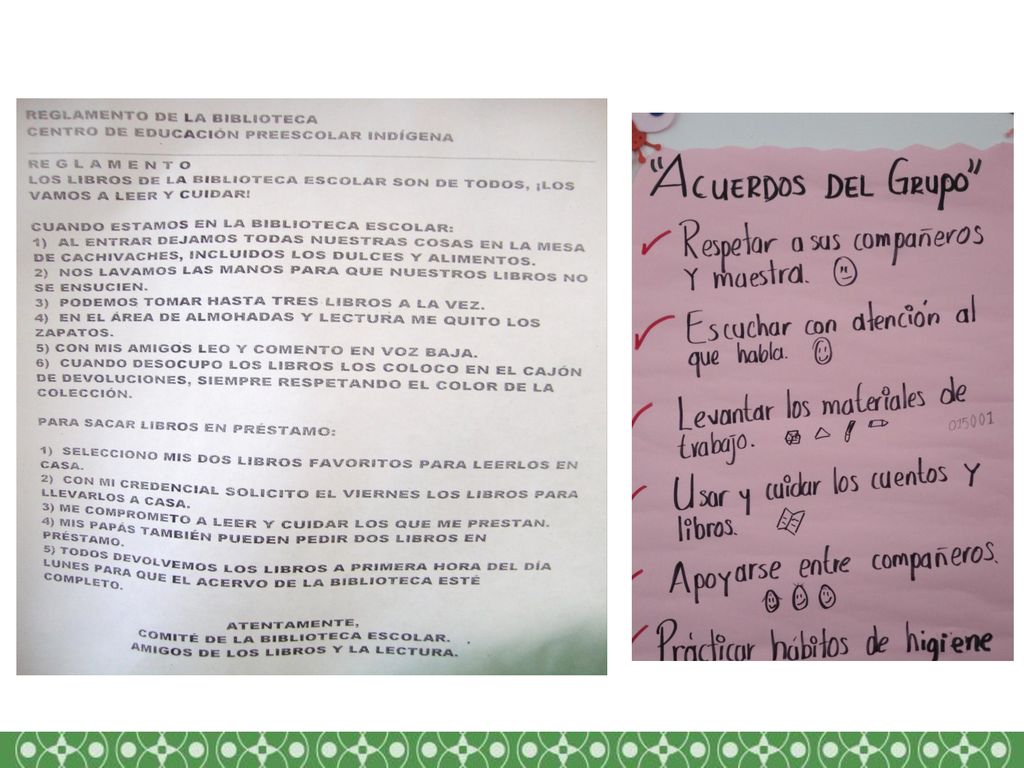 REGLAMENTO DE LA BIBLIOTECA
CENTRO DE EDUCACIÓN PREESCOLAR INDÍGENA
REGLAMENTO
LOS LIBROS DE LA BIBLIOTECA ESCOLAR SON DE TODOS, ¡LOS
VAMOS A LEER Y CUIDAR!
CUANDO ESTAMOS EN LA BIBLIOTECA ESCOLAR:
1) AL ENTRAR DEJAMOS TODAS NUESTRAS COSAS EN LA MESA
DE CACHIVACHES, INCLUIDOS LOS DULCES Y ALIMENTOS.
2) NOS LAVAMOS LAS MANOS PARA QUE NUESTROS LIBROS NO
SE ENSUCIEN.
3) PODEMOS TOMAR HASTA TRES LIBROS A LA VEZ.
4) EN EL ÁREA DE ALMOHADAS Y LECTURA ME QUITO LOS
ZAPATOS.
5) CON MIS AMIGOS LEO Y COMENTO EN VOZ BAJA.
6) CUANDO DESOCUPO LOS LIBROS LOS COLOCO EN EL CAJÓN
DE DEVOLUCIONES, SIEMPRE RESPETANDO EL COLOR DE LA
COLECCIÓN.
PARA SACAR LIBROS EN PRÉSTAMO:
1) SELECCIONO MIS DOS LIBROS FAVORITOS PARA LEERLOS EN
CASA.
2) CON MI CREDENCIAL SOLICITO EL VIERNES LOS LIBROS PARA
LLEVARLOS A CASA.
3) ME COMPROMETO A LEER Y CUIDAR LOS QUE ME PRESTAN.
4) MIS PAPÁS TAMBIÉN PUEDEN PEDIR DOS LIBROS EN
PRÉSTAMO.
5) TODOS DEVOLVEMOS LOS LIBROS A PRIMERA HORA DEL DÍA
LUNES PARA QUE EL ACERVO DE LA BIBLIOTECA ESTÉ
COMPLETO.
ATENTAMENTE,
COMITÉ DE LA BIBLIOTECA ESCOLAR.
AMIGOS DE LOS LIBROS Y LA LECTURA.
"ACUERDOS DEL GRUPO"
Respetar a sus compañeros
Y maestra.
Escuchar con atención al
que habla.
Levantar los materiales de
trabajo.
015001
Usar y cuidar los cuentos Y
libros.
Apoyarse entre compañeros.
Prácticar hábitos de higiene